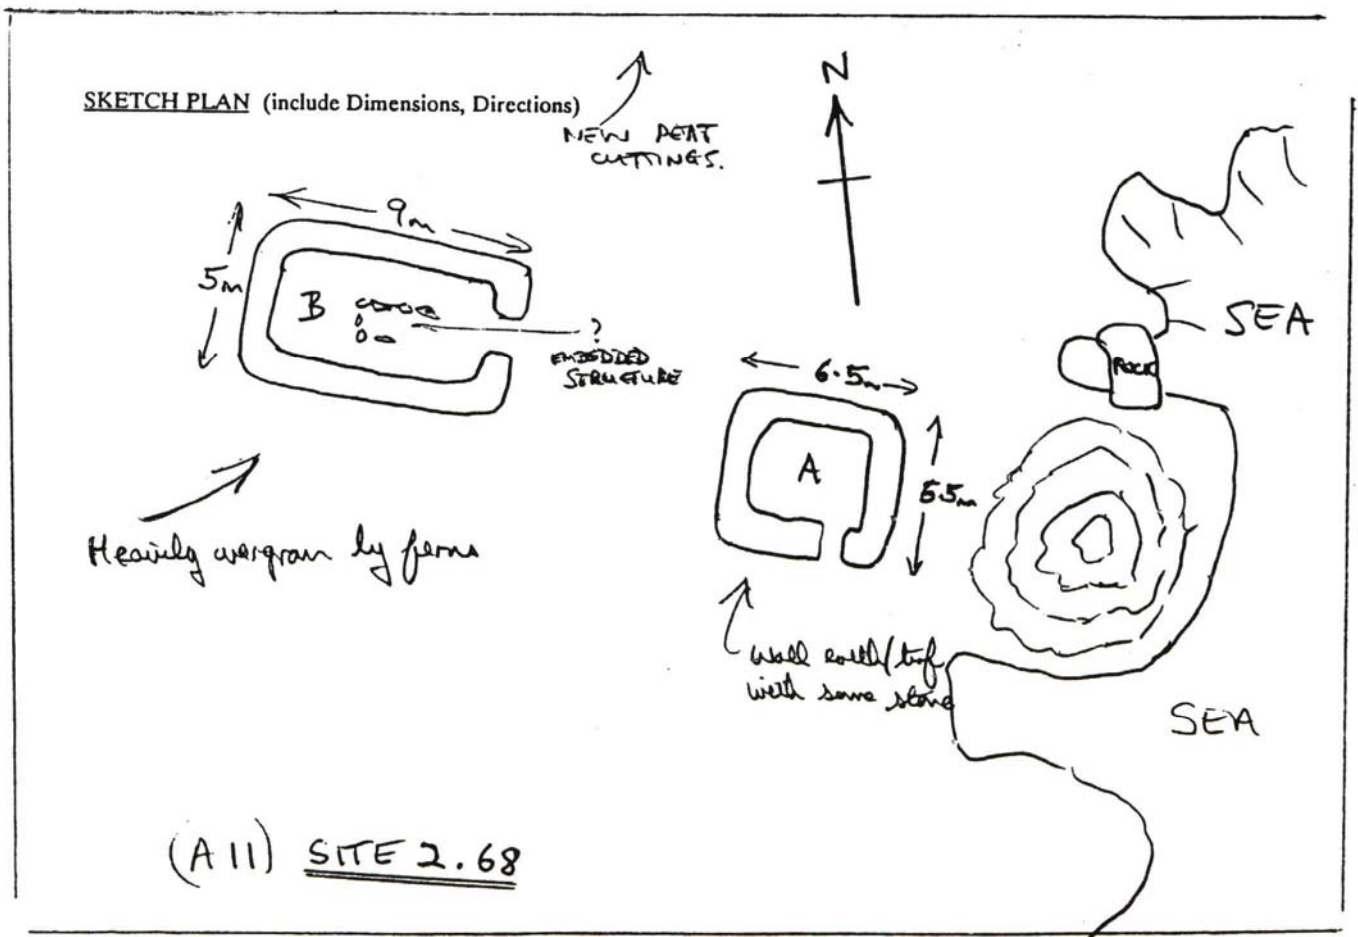 SKETCH PLAN (include Dimensions, Directions)
NEW PEAT
CUTTINGS.
N
9m
5m
B
?
EMBEDDED
STRUCTURE
SEA
ROCK
6.5m
A
5.5m
Heavily overgrown by ferns
Wall earth/turf
with some stone
SEA
(A11) SITE 2.68